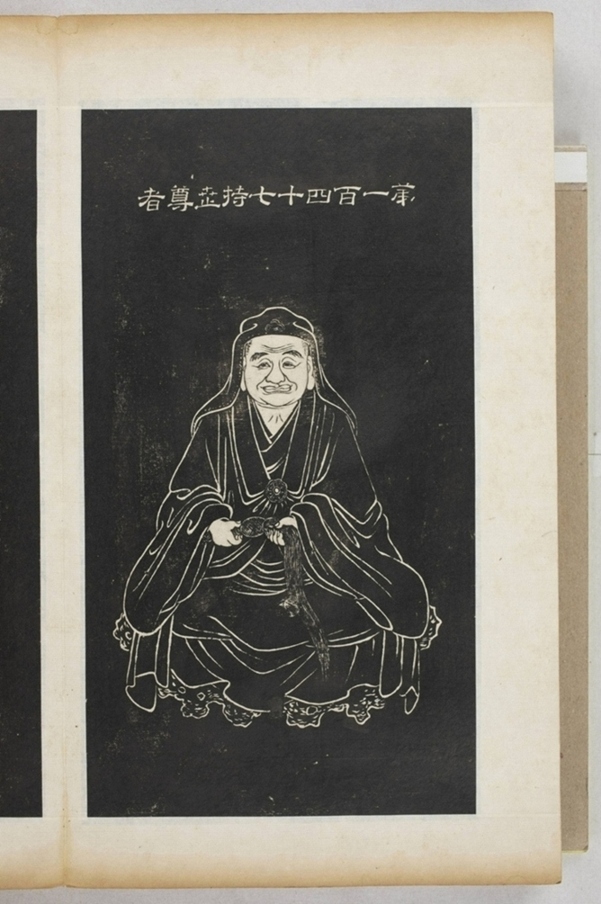 第一百四十七持世尊者